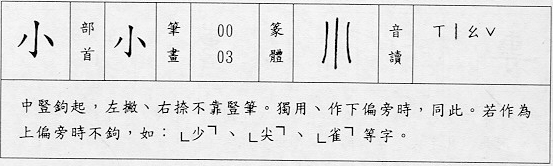 小 部首 小 筆畫 00 03 篆體 音讀 ㄒㄧㄠˇ
中豎鉤起，左撇、右捺不靠豎筆。獨用、作下偏旁時，同此。若作為
上偏旁時不鉤，如：﹂少﹁、﹂尖﹁、﹂雀﹁等字。